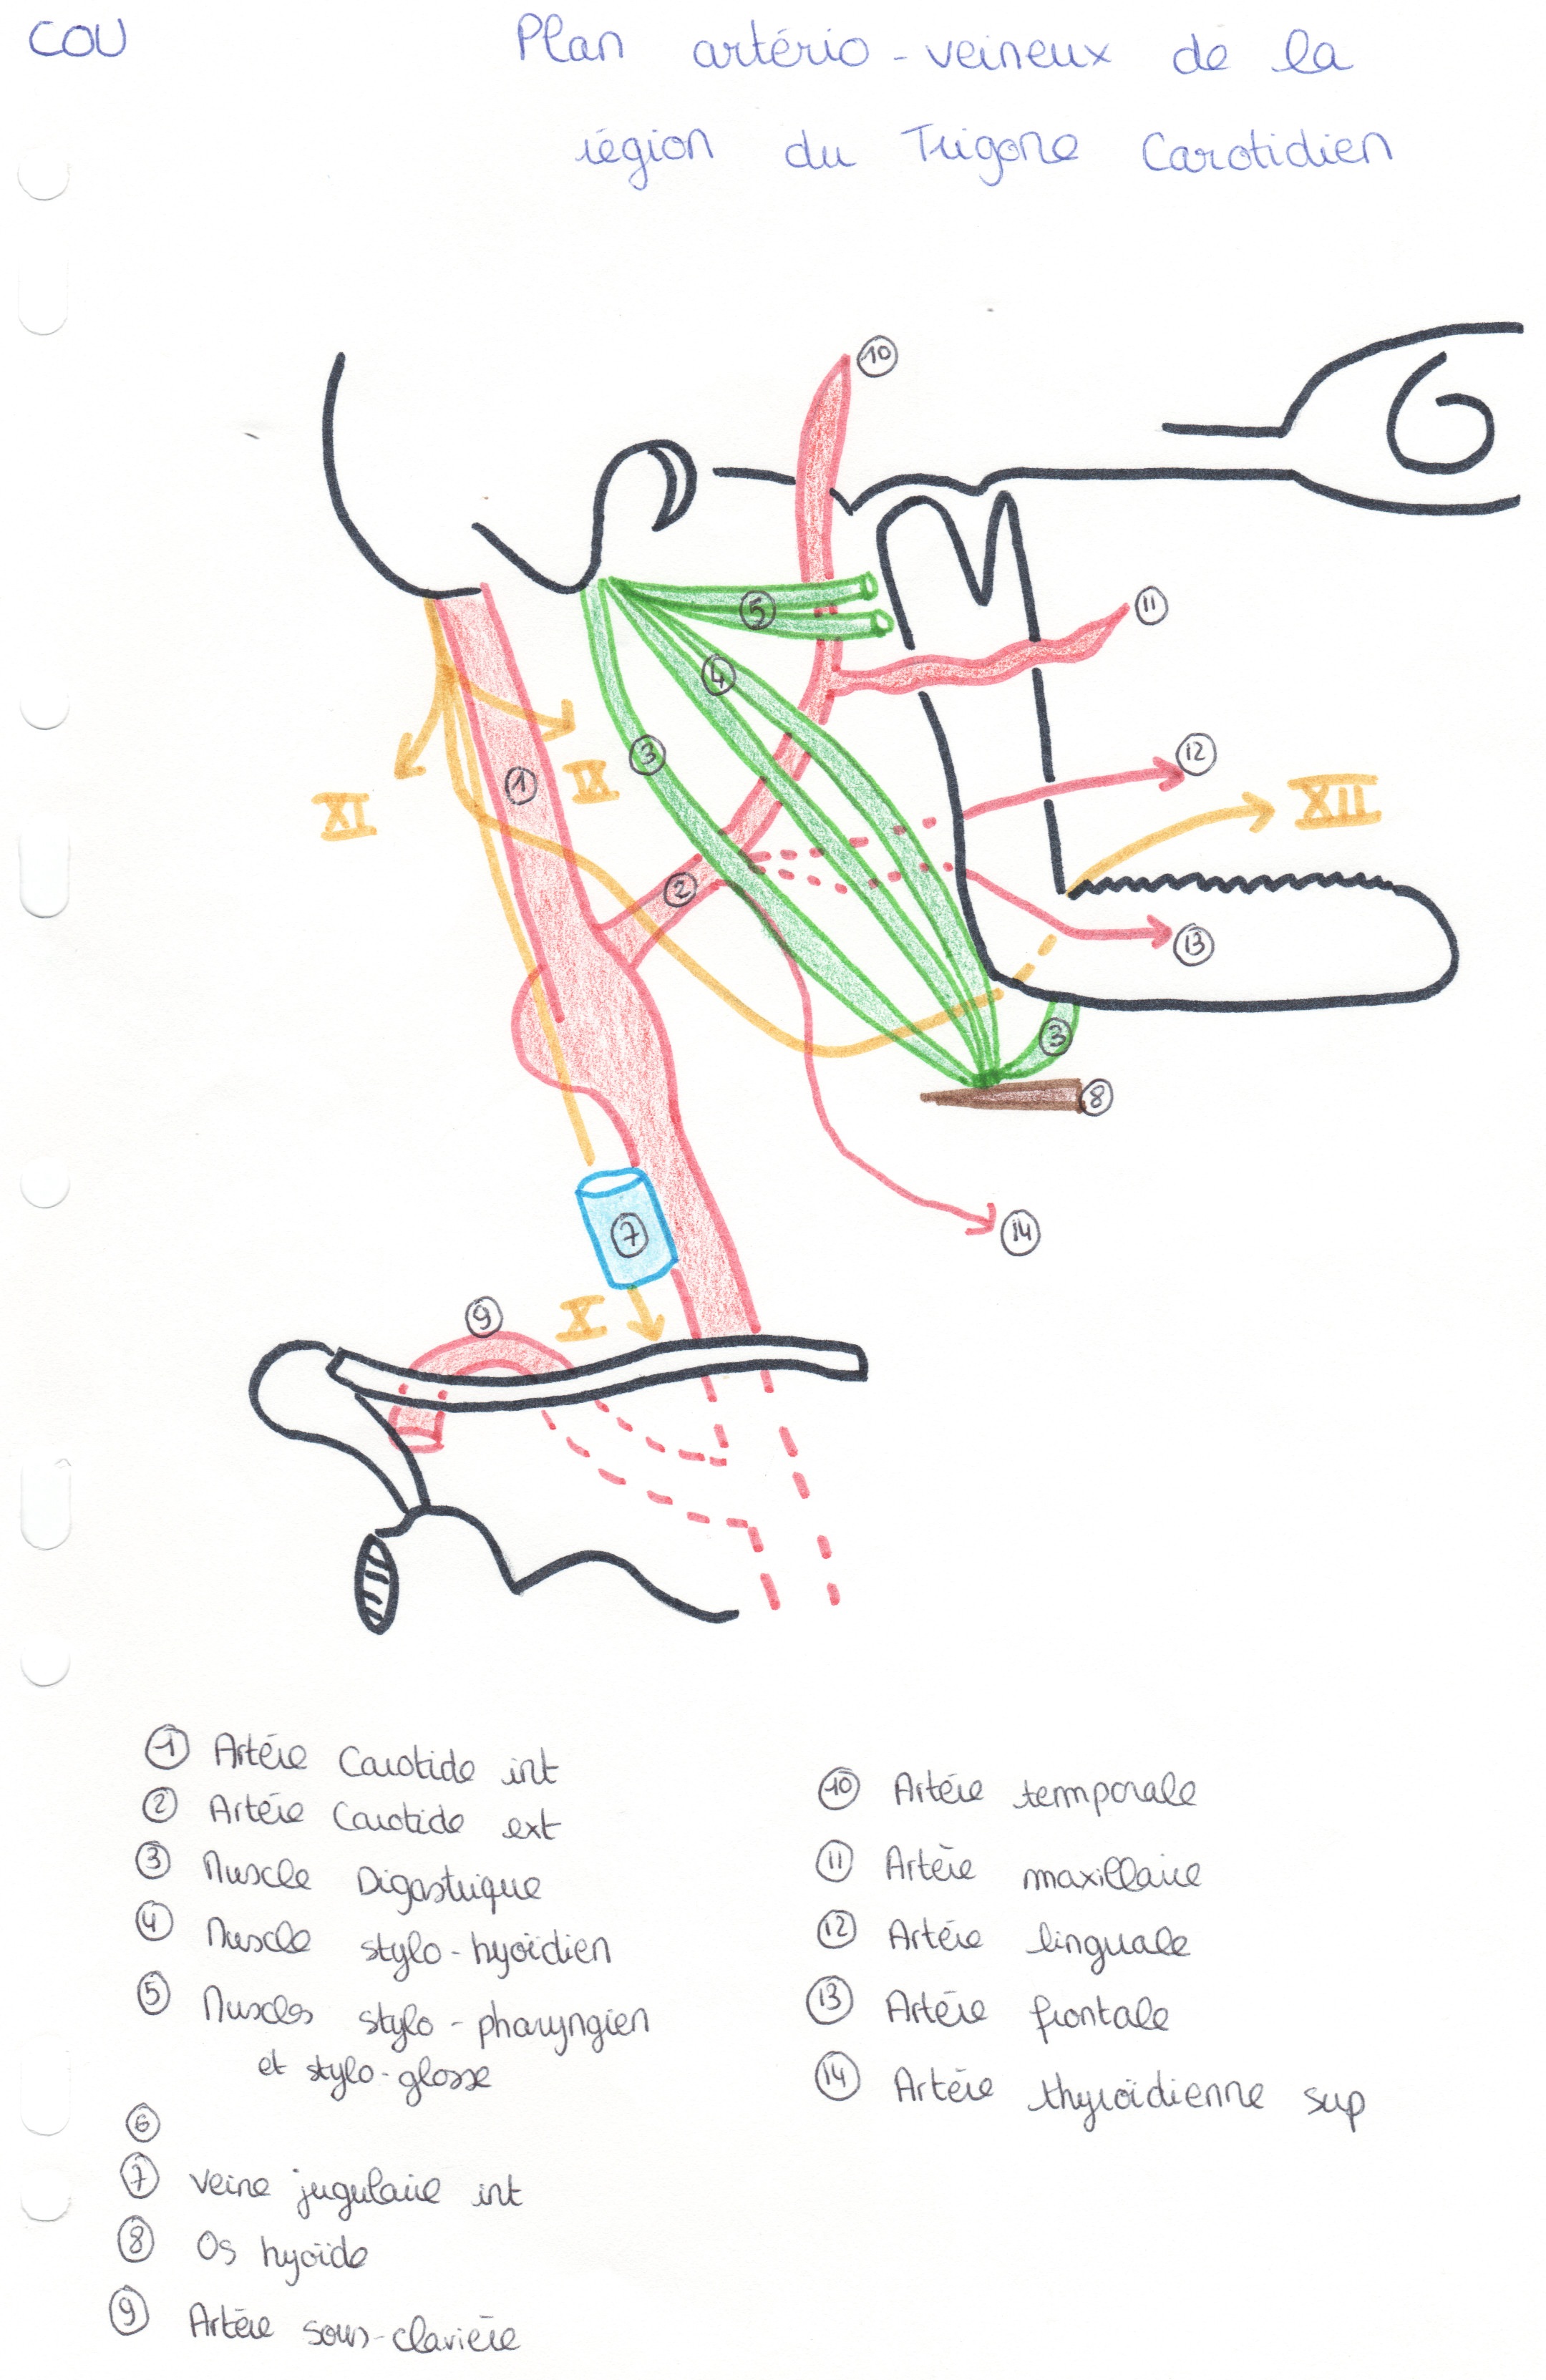 COU
Plan artério-veineux de la
région du Trigone Carotidien
10
11
5
4
12
3
1
IX
XI
XII
2
13
3
8
7
14
9
X
1 Artére Carotide int
2 Artére Carotide ext
3 Muscle Digastrique
4 Muscle stylo-hyoïdien
5 Muscles stylo-pharyngien
et stylo-glosse
6
7 Veine jugulaire int
8 Os hyoïde
9 Artére sous-clavière
10 Artére temporale
11 Artère maxillaire
12 Artére linguale
13 Artére frontale
14 Artére thyroïdienne sup